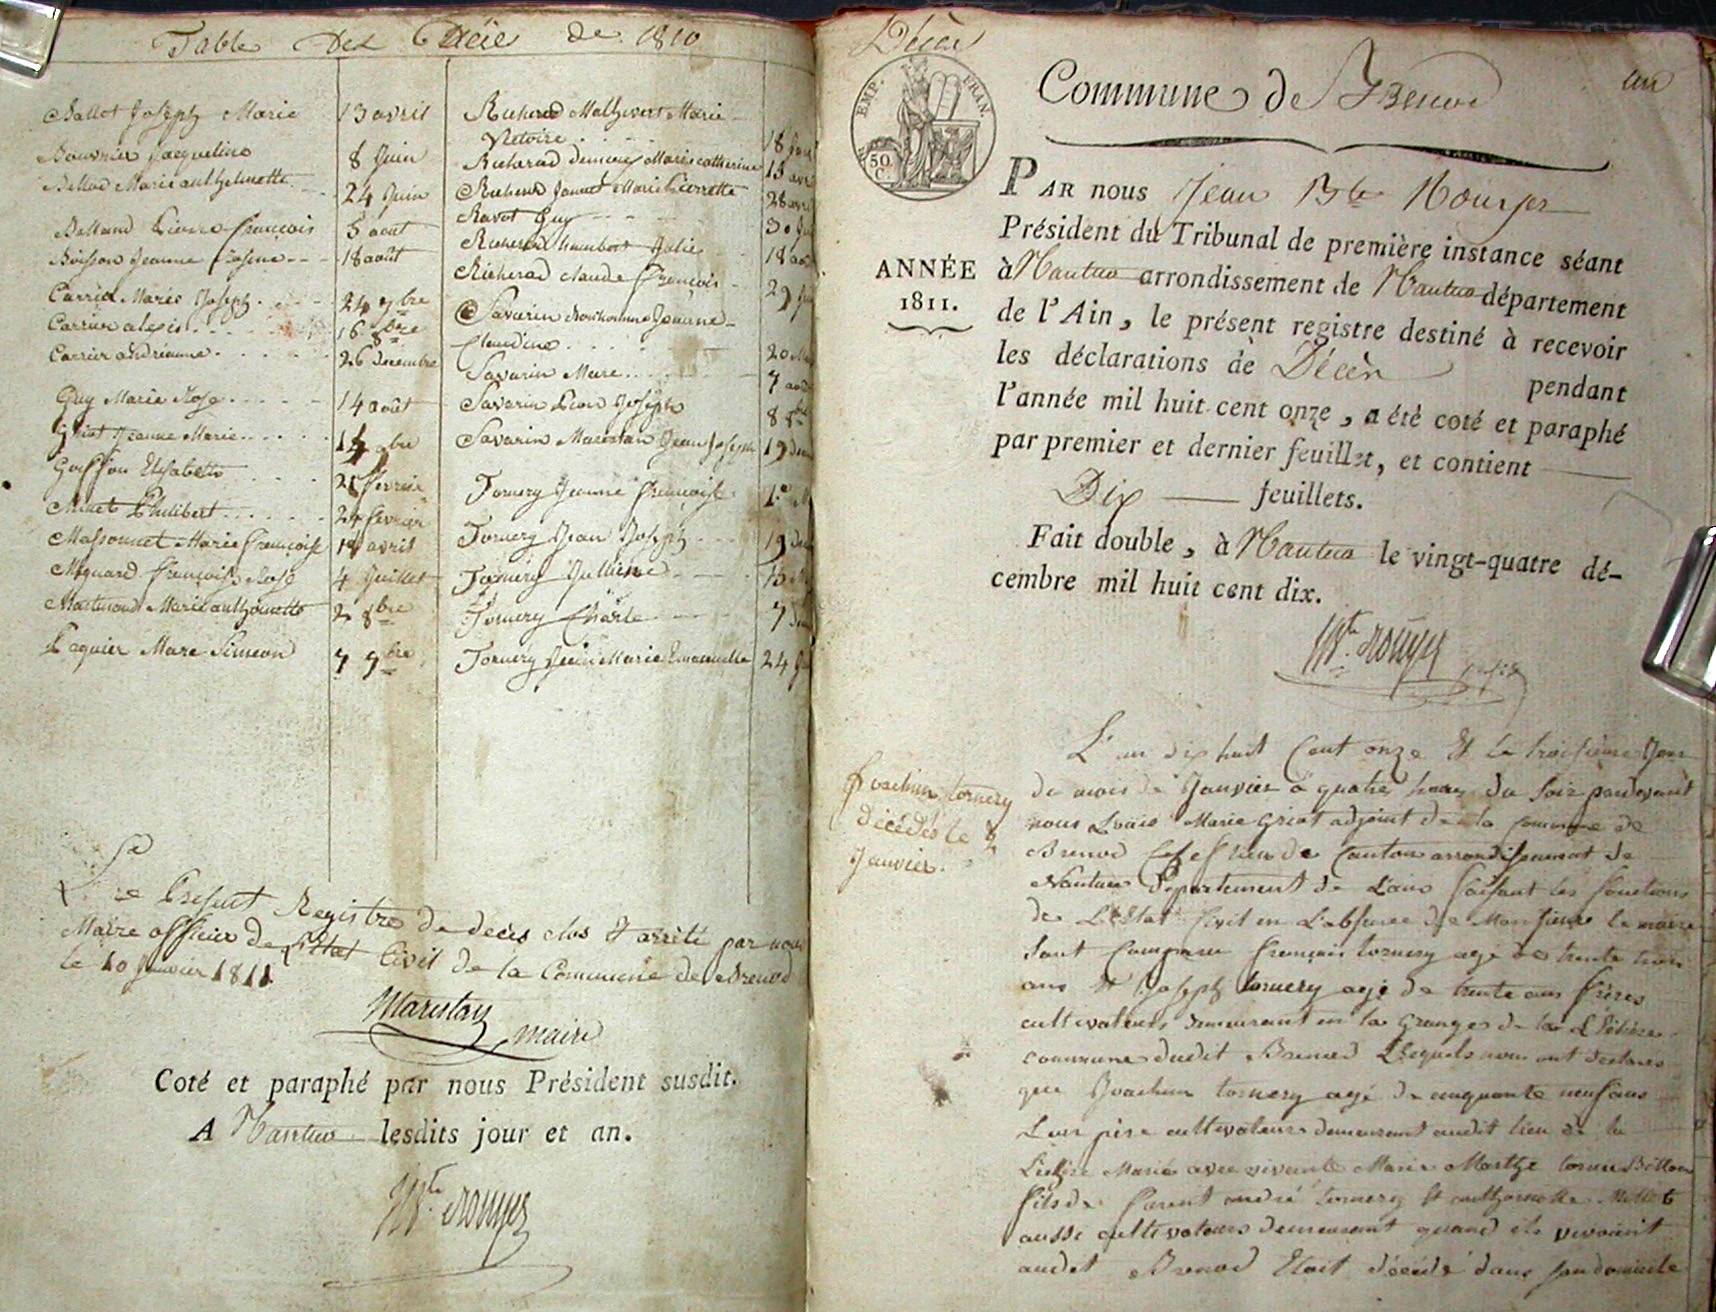 Table Des Décès de 1810
Ballot Joseph Marie 13 avril
Bouvnier Jacqueline 8 Juin
Balland Marie anthelmette 24 Juin
Balland Pierre François 5 août
Boisson Jeanne 18 août
Carrier Marie Joseph 24 9bre
Carrier alexis 16 8bre
Carrier andrienne 26 Decembre
Guy Marie Rose 14 août
Griot Jeanne Marie 14 9bre
Goiffon Elisabeth février
Millet Philibert 24 février
Massonnet Marie françoise avril
Miquard françoise Rose 4 Juillet
Marie anthoinette 2 8bre
Paquier Marc Simeon 7 9bre
Richerod Marie
Victoire 18
Richerod Marie catherine 13
Richerod Marie Pierrette 28
Ravot Guy 30
Richerod humbert Julie 18
Richerod claude François 29
Savarin Bonhomme Jeanne
Claudine 20
Savarin Marc 7
Savarin Joseph 8 8bre
Savarin Maristan Jean Joseph 19
Tornery Jeanne Françoise 1er
Tornery Jean Joseph 19
Tornery Jullienne
Tornery Charle 7
Tornery Jean Marie Emanuelle 24
Le Present Registre de decès clos & arrêté par nous
Maire officier de L'Etat Civil de la Commune de Brenod
le 10 Janvier 1811
Maristan
maire
Coté et paraphé par nous Président susdit.
A Nantua lesdits jour et an.
Bte Rouyer
Décès
EMP. FRAN.
50
C.
un
Commune de Brenod
ANNÉE
1811.
PAR nous Jean Bte Rouyer
Président du Tribunal de première instance séant
à Nantua arrondissement de Nantua département
de l'Ain, le présent registre destiné à recevoir
les déclarations de Décès pendant
l'année mil huit cent onze, a été coté et paraphé
par premier et dernier feuillet, et contient
Dix feuillets.
Fait double, à Nantua le vingt-quatre dé-
cembre mil huit cent dix.
Bte Rouyer
Joachim tornery
décédé le 2
Janvier.
L'an dix huit Cent onze Et le troisième Jour
du mois de Janvier à quatre heures du Soir pardevant
nous Louis Marie Griot adjoint de la commune de
Brenod Chef lieu de Canton arrondissement de
Nantua Departement de L'ain faisant les fonctions
de L'Etat Civil en L'absence de Monsieur le maire
Sont Comparu François tornery agé de trente trois
ans & Joseph tornery agé de trente ans frères
cultivateurs demeurant en la Grange de la
commune dudit Brenod Lesquels nous ont declaré
que Joachim tornery agé de cinquante neuf ans
Leur père cultivateur demeurant audit lieu de la
Marié avec vivante Marie Marthe
fils de andré tornery & anthoinette Millet
aussi cultivateurs demeurant quand ils vivoient
audit Brenod Etoit décédé dans son domicile